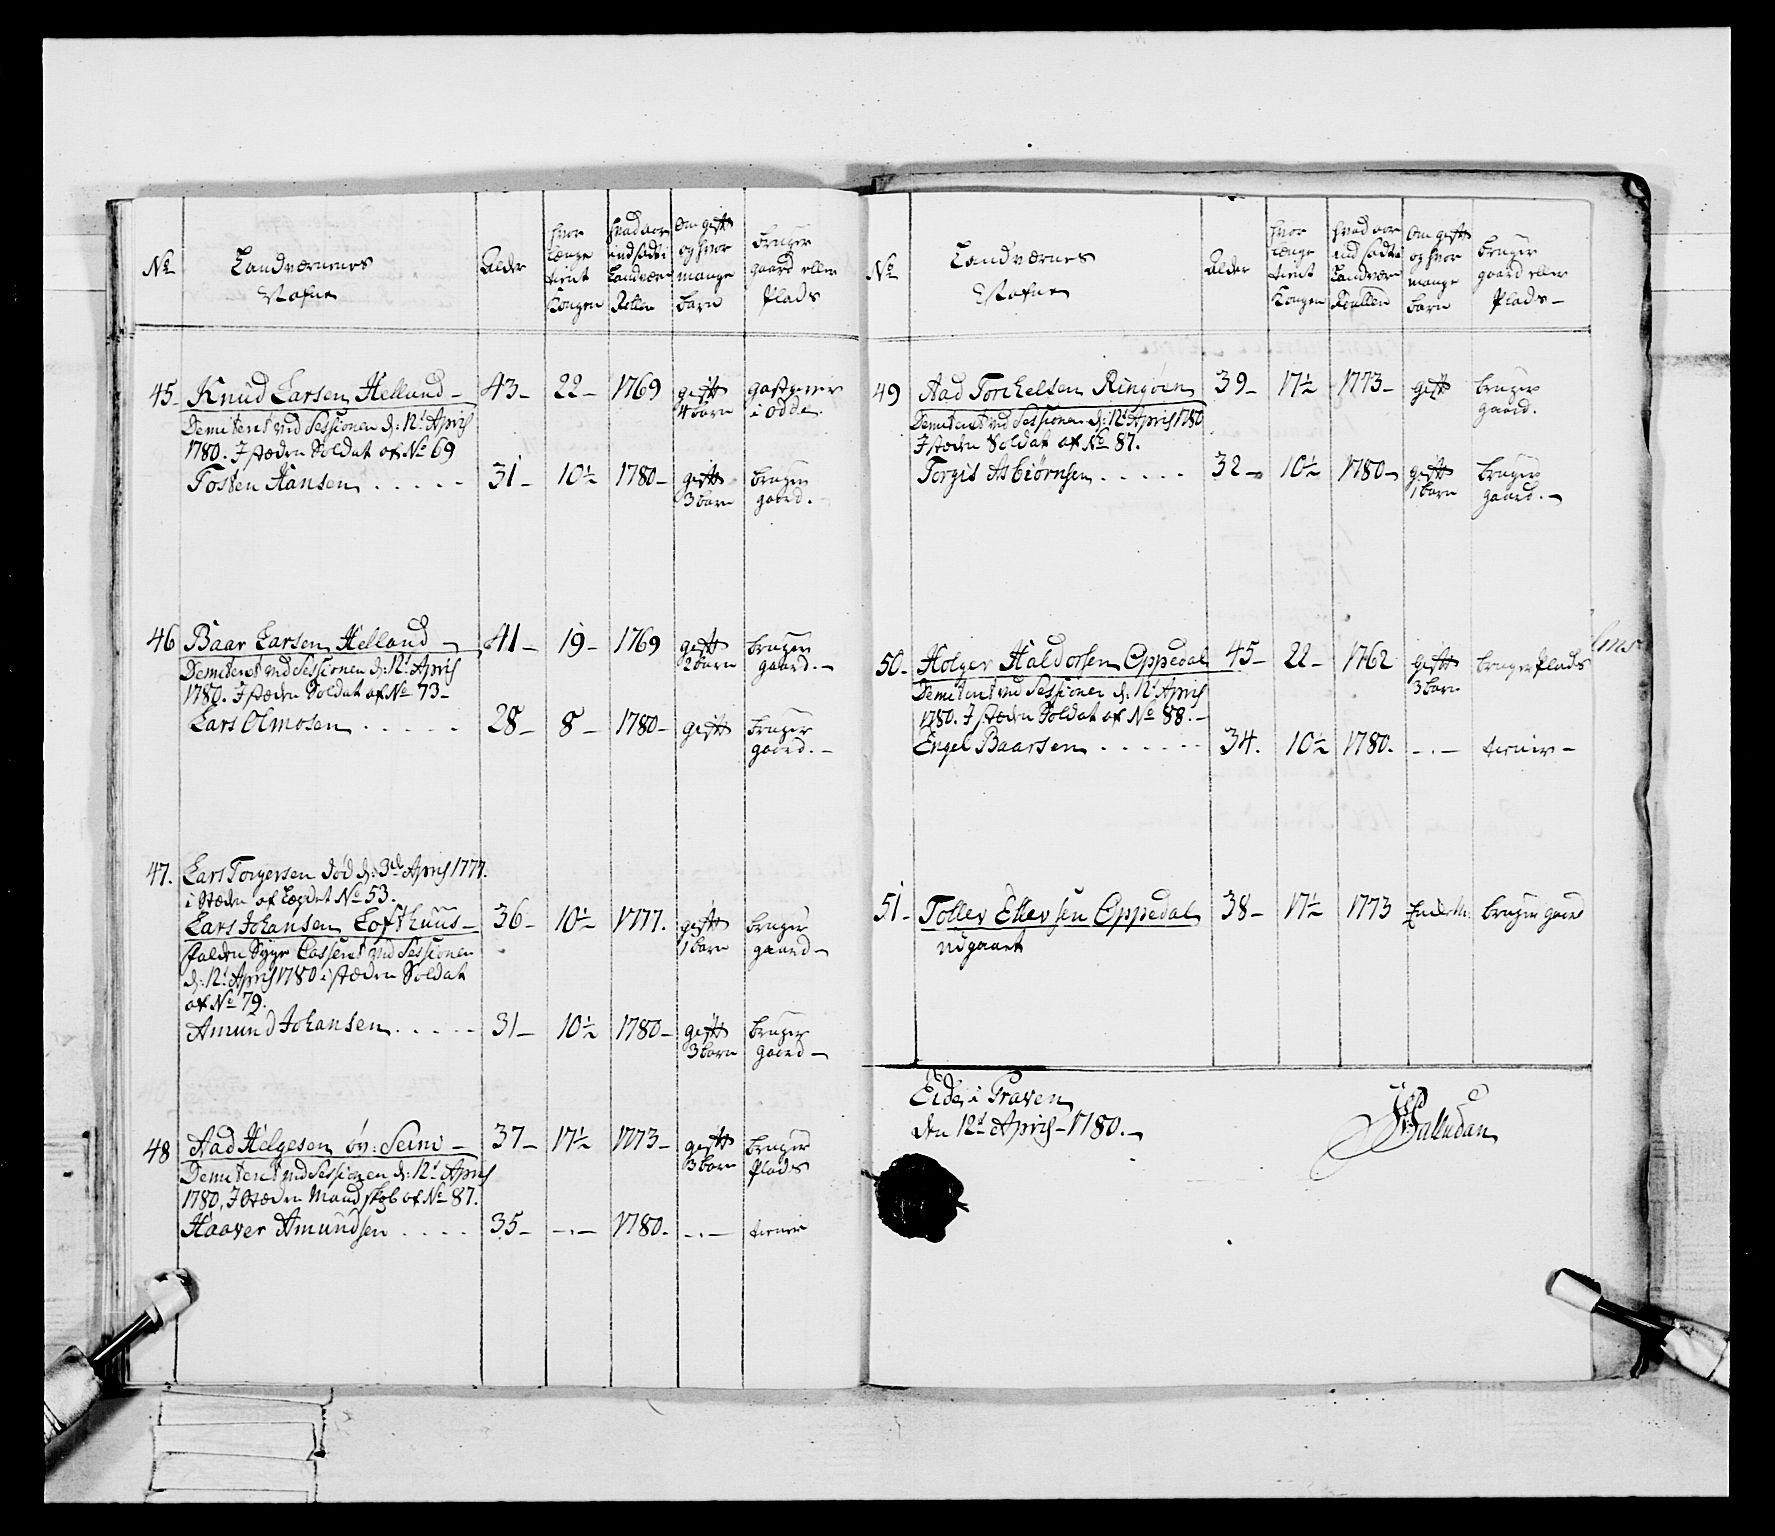 No
Landværnenes
Nafne
Alder
hvor
længe
tient
Kongen
hvad aar
indsadt i
Landværn
Rullen
Om gift
og hvor
mange
barn
bruger
gaard eller
Plads
45 Knud Larsen Helland 43 22 1769 gift gastgiver
4 barn i Odde
Demiteret ved Sessionen d: 12t April
1780. I stæden Soldat af No 69
Tosten Hansen 31 10½ 1780 gift bruger
3 barn gaard.
46 Baar Larsen Helland 41 19 1769 gift bruger
2 barn gaard.
Demiteret ved Sessionen d: 12t April
1780. I stæden Soldat af No 73
Lars Olmosen 28 8 1780 gift bruger
gaard.
47. Lars Torgersen død d: 3de April 1777.
i stæden af Lægdet No 53.
Lars Johansen Lofthuus 36 10½ 1777. gift bruger
1 barn gaard
falden Syge Casseret ved Sessionen
d: 12t April 1780 i stæden Soldat
af No 79.
Amund Johansen 31 10½ 1780 gift bruger
3 barn gaard
48 Aad Helgesen öv: Seim 37 17½ 1773 gift bruger
3 barn Plads
Demiteret ved Sessionen d: 12t April
1780. I stæden Mandskab af No 87.
Haaver Amundsen 35 -.- 1780. -.- tiener
No
Landværnes
Nafne
Alder
hvor
længe
tient
Kongen
hvad aar
ind sadt i
Landværn
Rullen
Om gift
og hvor
mange
barn
bruger
gaard eller
Plads
49 Aad Torchelsen Ringöen 39 17½ 1773 gift bruger
gaard.
Demiteret ved Sessionen d: 12t April 1780
I stæden Soldat af No 87.
Torgis Asbiörnsen 32 10½ 1780 gift bruger
1 barn gaard.
50. Holger Haldorsen Oppedal 45 22 1762 gift bruger Plads
3 barn
Demiteret ved Sessionen d: 12t April
1780. I stæden Soldat af No 88.
Engel Baarsen 34. 10½ 1780. -.- tiener
51 Tollev Ellevsen Oppedal 38 17½ 1773 bruger gaard
udgaaet
Eide i Graven
den 12t April 1780.
Palludan